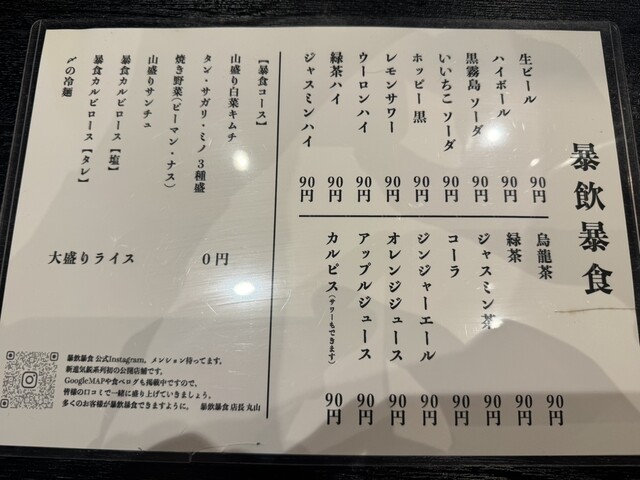 暴飲暴食
生ビール 90円
ハイボール 90円
黒霧島 ソーダ 90円
いいちこ ソーダ 90円
ホッピー 黒 90円
レモンサワー 90円
ウーロンハイ 90円
緑茶ハイ 90円
ジャスミンハイ 90円
烏龍茶 90円
緑茶 90円
ジャスミン茶 90円
コーラ 90円
ジンジャーエール 90円
オレンジジュース 90円
アップルジュース 90円
カルピス(サワーもできます) 90円
【暴食コース】
山盛り白菜キムチ
タン・サガリ・ミノ 3種盛
焼き野菜(ピーマン・ナス)
山盛りサンチュ
暴食カルビロース【塩】
暴食カルビロース【タレ】
〆の冷麺
大盛りライス 0円
暴飲暴食 公式Instagram。メンション待ってます。
新進気鋭系列初の公開店舗です。
GoogleMAPや食べログも掲載中ですので、
皆様の口コミで一緒に盛り上げていきましょう。
多くのお客様が暴飲暴食できますように。 暴飲暴食 店長 丸山